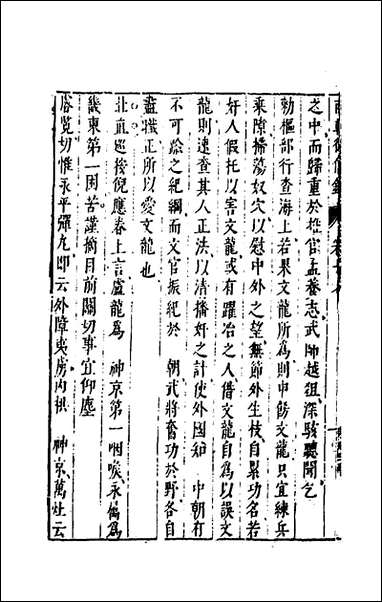 之中而歸重於推官孟養志武帥越俎深駭聽聞乞
勅樞部行查海上若果文龍所為則申飭文龍只宜練兵
乘隙掃蕩奴穴以慰中外之望無節外生枝自累功名若
奸人假托以害文龍或有躍冶之人借文龍自為以誤文
龍則速查其人正法以清播奸之計使外國知 中朝有
不可踰之紀綱而文官振紀於 朝武將奮功於野各自
盡職正所以愛文龍也
北直巡按倪應春上言盧龍為 神京第一咽喉永備為
畿東第一困苦謹摘目前關切事宜仰塵
睿覽切惟永平彈丸即云外障夷虜內拱 神京萬灶云